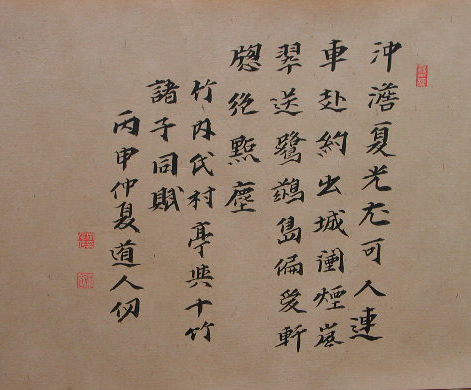 沖澹夏光尤可人連
車赴約出城闉煙嵐
翠送鷺鷀島偏愛軒
牕絶點塵
竹内氏村亭與十竹
諸子同賦
丙申仲夏道人